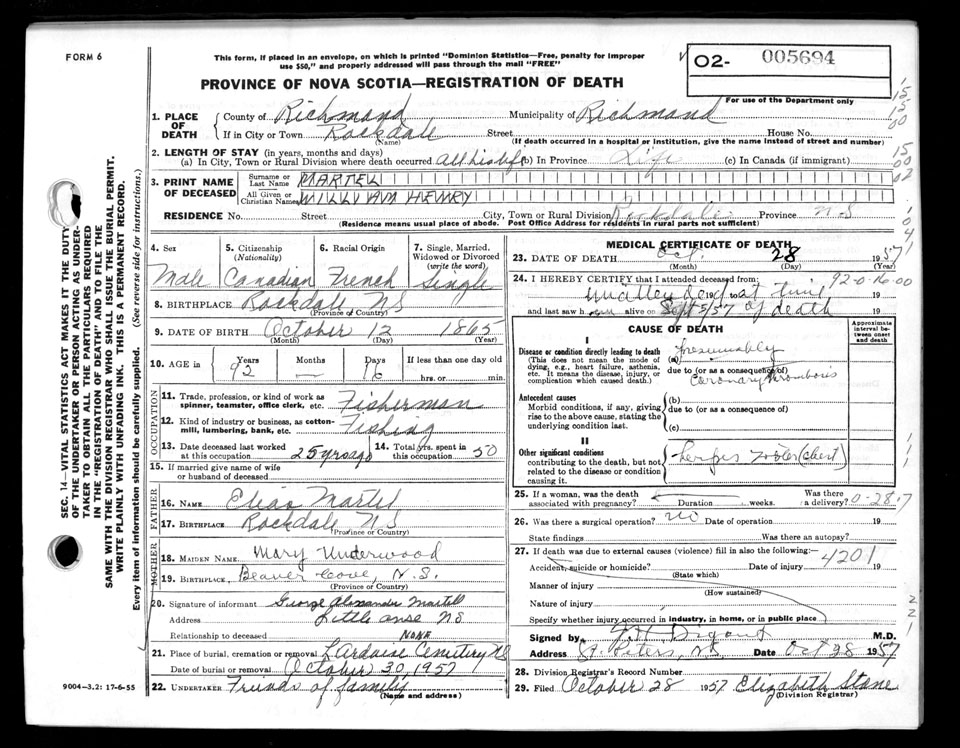 FORM 6
This form, if placed in an envelope, on which is printed "Dominion Statistics—Free, penalty for improper
use $50," and properly addressed will pass through the mail "FREE"
O2- 005694
For use of the Department only
PROVINCE OF NOVA SCOTIA—REGISTRATION OF DEATH
1. PLACE OF DEATH
County of Richmond Municipality of Richmond
If in City or Town Rockdale Street House No.
(Name) (If death occurred in a hospital or institution, give the name instead of street and number)
2. LENGTH OF STAY (in years, months and days)
(a) In City, Town or Rural Division where death occurred all his life (b) In Province Life (c) In Canada (if immigrant)
3. PRINT NAME OF DECEASED
Surname or Last Name MARTELL
All Given or Christian Names WILLIAM HENRY
RESIDENCE No. Street City, Town or Rural Division Rockdale Province N S
(Residence means usual place of abode. Post Office Address for residents in rural parts not sufficient)
4. Sex Male
5. Citizenship (Nationality) Canadian
6. Racial Origin French
7. Single, Married, Widowed or Divorced (write the word) Single
8. BIRTHPLACE Rockdale N S
(Province or Country)
9. DATE OF BIRTH October 12 1865
(Month) (Day) (Year)
10. AGE in Years 92 Months — Days 16 If less than one day old hrs. or min.
OCCUPATION
11. Trade, profession, or kind of work as spinner, teamster, office clerk, etc. Fisherman
12. Kind of industry or business, as cotton-mill, lumbering, bank, etc. Fishing
13. Date deceased last worked at this occupation 25 yrs ago
14. Total yrs. spent in this occupation 50
15. If married give name of wife or husband of deceased
FATHER
16. NAME Elias Martel
17. BIRTHPLACE Rockdale N S
(Province or Country)
MOTHER
18. MAIDEN NAME Mary Underwood
19. BIRTHPLACE Beaver Cove, N.S.
(Province or Country)
20. Signature of informant George Alexander Martell
Address Little anse NS
Relationship to deceased NONE
21. Place of burial, cremation or removal Lardoise Cemetery NS
Date of burial or removal October 30, 1957
22. UNDERTAKER Friends of family
(Name and address)
9004—3.2: 17-6-55
MEDICAL CERTIFICATE OF DEATH
23. DATE OF DEATH Oct. 28 1957
(Month) (Day) (Year)
24. I HEREBY CERTIFY that I attended deceased from: 92-0-16-00
19 to at time 19
and last saw h alive on Sept 5/57 of death 19
CAUSE OF DEATH
Approximate interval between onset and death
I
Disease or condition directly leading to death
(This does not mean the mode of dying, e.g., heart failure, asthenia, etc. It means the disease, injury, or complication which caused death.)
(a) Presumably
due to (or as a consequence of)
Coronary thrombosis
Antecedent causes
Morbid conditions, if any, giving rise to the above cause, stating the underlying condition last.
(b)
due to (or as a consequence of)
(c)
II
Other significant conditions
contributing to the death, but not related to the disease or condition causing it.
Herpes Zoster (chest)
25. If a woman, was the death associated with pregnancy? Duration weeks. Was there a delivery? 0-28-7
26. Was there a surgical operation? no Date of operation 19
State findings Was there an autopsy?
27. If death was due to external causes (violence) fill in also the following:—
Accident, suicide or homicide? Date of injury 19
4201
(State which)
Manner of injury
(How sustained)
Nature of injury
Specify whether injury occurred in industry, in home, or in public place
Signed by M.D.
Address St. Peters, NS Date Oct 28 1957
28. Division Registrar's Record Number
29. Filed October 28 1957 Elizabeth Stone
(Division Registrar)
SEC. 14—VITAL STATISTICS ACT MAKES IT THE DUTY
OF THE UNDERTAKER OR PERSON ACTING AS UNDER-
TAKER TO OBTAIN ALL THE PARTICULARS REQUIRED
IN THE "REGISTRATION OF DEATH" AND TO FILE THE
SAME WITH THE DIVISION REGISTRAR WHO SHALL ISSUE THE BURIAL PERMIT.
WRITE PLAINLY WITH UNFADING INK. THIS IS A PERMANENT RECORD.
Every item of information should be carefully supplied. (See reverse side for instructions.)